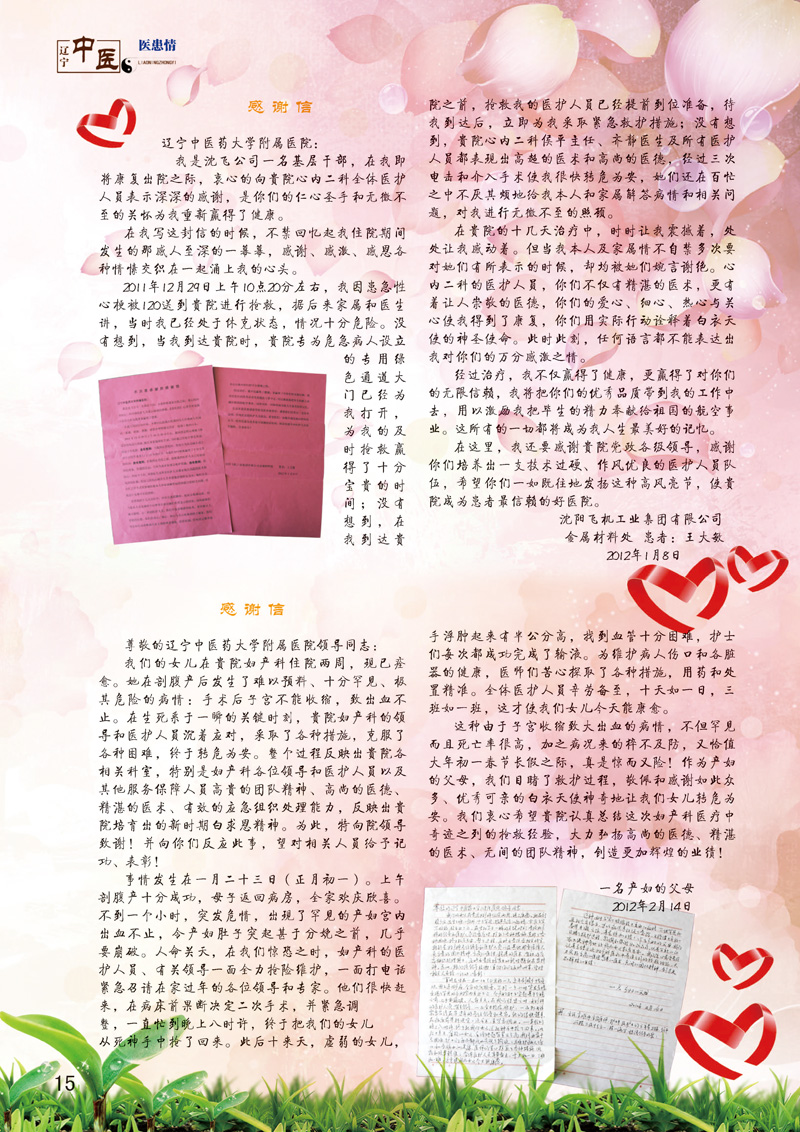 辽宁
中医
医患情
LIAONINGZHONGYI
感谢信
辽宁中医药大学附属医院：
我是沈飞公司一名基层干部，在我即
将康复出院之际，衷心的向贵院心内二科全体医护
人员表示深深的感谢，是你们的仁心圣手和无微不
至的关怀为我重新赢得了健康。
在我写这封信的时候，不禁回忆起我住院期间
发生的那感人至深的一幕幕，感谢、感激、感恩各
种情愫交织在一起涌上我的心头。
2011年12月29日上午10点20分左右，我因患急性
心梗被120送到贵院进行抢救，据后来家属和医生
讲，当时我已经处于休克状态，情况十分危险。没
有想到，当我到达贵院时，贵院专为危急病人设立
的专用绿
色通道大
门已经为
我打开，
为我的及
时抢救赢
得了十分
宝贵的时
间；没有
想到，在
我到达贵
院之前，抢救我的医护人员已经提前到位准备，待
我到达后，立即为我采取紧急救护措施；没有想
到，贵院心内二科侯平主任、齐静医生及所有医护
人员都表现出高超的医术和高尚的医德，经过三次
电击和介入手术使我很快转危为安，她们还在百忙
之中不厌其烦地给我本人和家属解答病情和相关问
题，对我进行无微不至的照顾。
在贵院的十几天治疗中，时时让我震撼着，处
处让我感动着。但当我本人及家属情不自禁多次要
对她们有所表示的时候，却均被她们婉言谢绝。心
内二科的医护人员，你们不仅有精湛的医术，更有
着让人崇敬的医德，你们的爱心、细心、热心与关
心使我得到了康复，你们用实际行动诠释着白衣天
使的神圣使命。此时此刻，任何语言都不能表达出
我对你们的万分感激之情。
经过治疗，我不仅赢得了健康，更赢得了对你们
的无限信赖，我将把你们的优秀品质带到我的工作中
去，用以激励我把毕生的精力奉献给祖国的航空事
业。这所有的一切都将成为我人生最美好的记忆。
在这里，我还要感谢贵院党政各级领导，感谢
你们培养出一支技术过硬、作风优良的医护人员队
伍，希望你们一如既往地发扬这种高风亮节，使贵
院成为患者最信赖的好医院。
沈阳飞机工业集团有限公司
金属材料处 患者：王大敏
2012年1月8日
感谢信
尊敬的辽宁中医药大学附属医院领导同志：
我们的女儿在贵院妇产科住院两周，现已痊
愈。她在剖腹产后发生了难以预料、十分罕见、极
其危险的病情：手术后子宫不能收缩，致出血不
止。在生死系于一瞬的关键时刻，贵院妇产科的领
导和医护人员沉着应对，采取了各种措施，克服了
各种困难，终于转危为安。整个过程反映出贵院各
相关科室，特别是妇产科各位领导和医护人员以及
其他服务保障人员高贵的团队精神、高尚的医德、
精湛的医术、有效的应急组织处理能力，反映出贵
院培育出的新时期白求恩精神。为此，特向院领导
致谢！并向你们反应此事，望对相关人员给予记
功、表彰！
事情发生在一月二十三日（正月初一）。上午
剖腹产十分成功，母子返回病房，全家欢庆欣喜。
不到一个小时，突发危情，出现了罕见的产妇宫内
出血不止，令产妇肚子突起甚于分娩之前，几乎
要崩破。人命关天，在我们惊恐之时，妇产科的医
护人员、有关领导一面全力抢险维护，一面打电话
紧急召请在家过年的各位领导和专家。他们很快赶
来，在病床前果断决定二次手术，并紧急调
整，一直忙到晚上八时许，终于把我们的女儿
从死神手中抢了回来。此后十来天，虚弱的女儿，
手浮肿起来有半公分高，找到血管十分困难，护士
们每次都成功完成了输液。为维护病人伤口和各脏
器的健康，医师们苦心探取了各种措施，用药和处
置精准。全体医护人员辛劳备至，十天如一日，三
班如一班，这才使我们女儿今天能康愈。
这种由于子宫收缩致大出血的病情，不但罕见
而且死亡率很高，加之病况来的猝不及防，又恰值
大年初一春节长假之际，真是惊而又险！作为产妇
的父母，我们目睹了救护过程，敬佩和感谢如此众
多、优秀可亲的白衣天使神奇地让我们女儿转危为
安。我们衷心希望贵院认真总结这次妇产科医疗中
奇迹之到的抢救经验，大力弘扬高尚的医德、精湛
的医术、无间的团队精神，创造更加辉煌的业绩！
一名产妇的父母
2012年2月14日
15